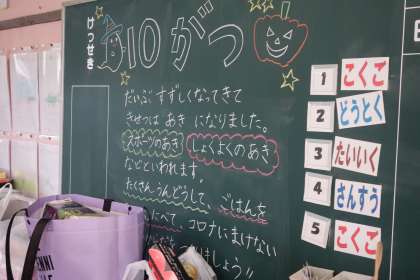 けっせき
10がつ
だいぶ すずしくなってきて
きせつは あき になりました。
スポーツのあき しょくよくのあき
などといわれます。
たくさんうんどうして、ごはんを
たべて、コロナにまけない
しょう!!
1 こくご
2 どうとく
3 たいいく
4 さんすう
5 こくご